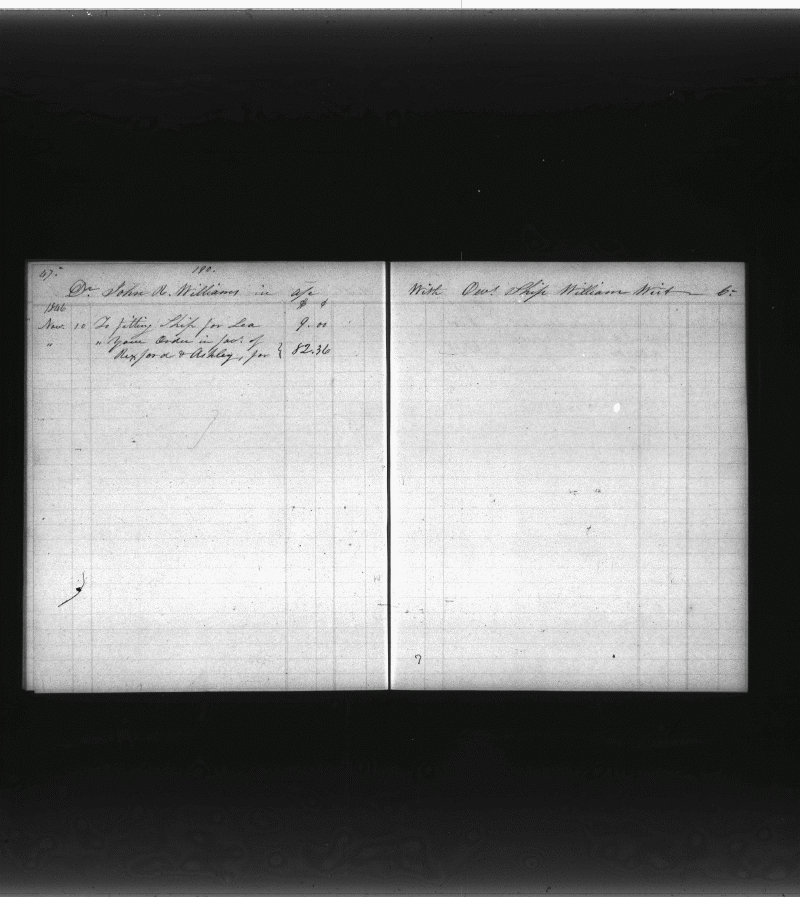 67.
190.
Dr. John R. Williams in a/c
1846 $ ¢
Nov. 10 To fitting Ship for Sea 9.00
" " Your Order in fav. of
Rexford & Ashley, for } 82.36
With Own.s Ship William Wirt Cr